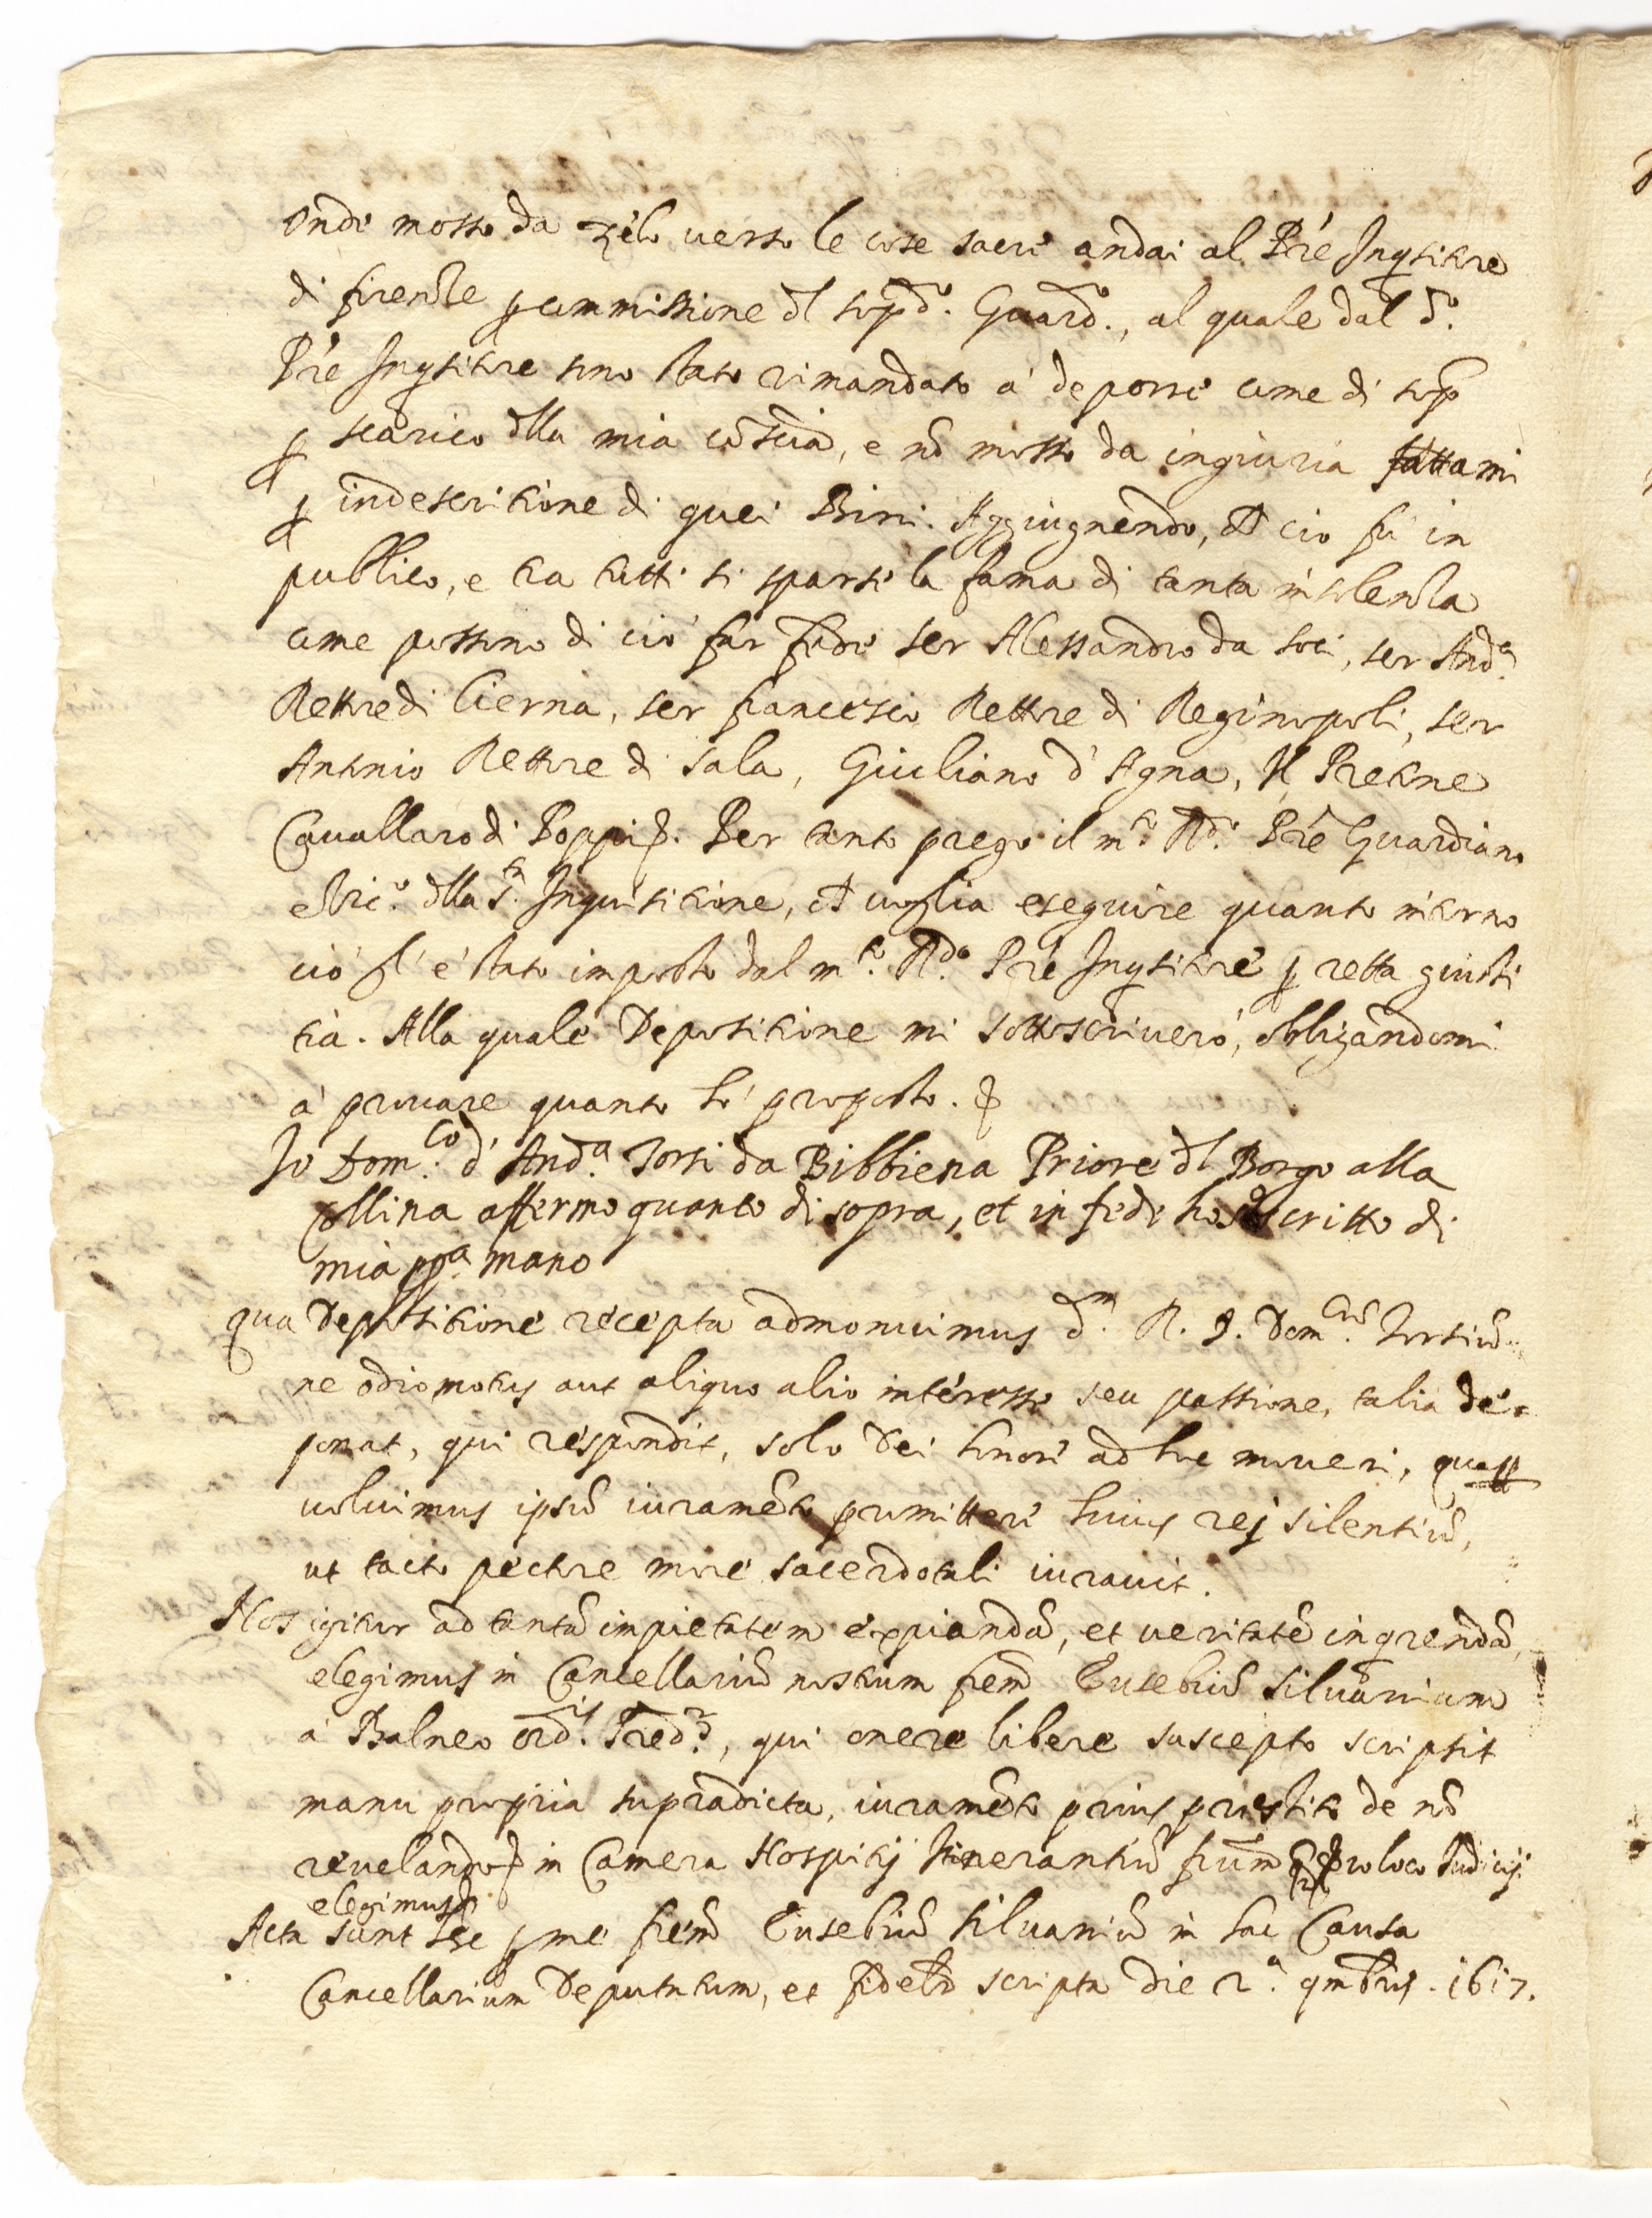 Onde mosso da zelo verso le cose sacre andai al Pre Inqsitore
di firenze p commissione dl sopd.o Guard.o, al quale dal d.o
Pre Inqsitore sono stato rimandato à deporre come di sop
p scarico dlla mia coscia, e nō mosso da ingiuria fattami
p indescritione di quei Birri. Aggiugnendo, ch cio fu in
publico, e tra tutti si sparse la fama di tanta insolenza
come possono di ciò far fede ser Alessandro da Soci, ser And.a
Rettore di Cierna, ser francesco Rettore di Reginopoli, ser
Antonio Rettore di Sala, Giuliano d'Agna, Il Pretone
Cavallaro di Poppi. Per tanto prego il m.to Rd.o Pre Guardiano
e Vic.o dlla S.ta Inquisitione, ch voglia eseguire quanto intorno
ciò gl' è stato imposto dal m.to Rd.o Pre Inqsitore p retta giusti
tia. Alla quale Depositione mi sottoscriverò, obligandomi
à provare quanto hò proposto.
Io Dom.co d'And.a Torsi da Bibbiena Priore dl Borgo alla
Collina affermo quanto di sopra, et in fede ho scritto di
mia pp.a mano
qua Depositione recepta admonuimus d.m R. D. Dom.cum Torsiū
ne odio motus aut aliquo alio interesse seu passione, talia de=
ponat, qui respondit, solo Dei honore ad hoc moveri,
voluimus ipsū iuramēto promittere huius rej silentiū,
ut tacto pectore more sacerdotali iuravit.
Nos igitur ad tantā impietatem expiandā, et veritatē inqrendā,
elegimus in Cancellariū nostrum frem Eusebiū Silvanium
à Balneo ord.is Pred.m, qui onere libere suscepto scripsit
manu propria supradicta, iuramēto prius prestito de nō
revelando in Camera Hospitij Itinerantiū frum pro loco Iudicij
elegimus
Acta sunt hec p me frem Eusebiū Silvaniū in hac Causa
Cancellarium Deputatum, et fidelr scripta Die 2.a qmbris. 1617.